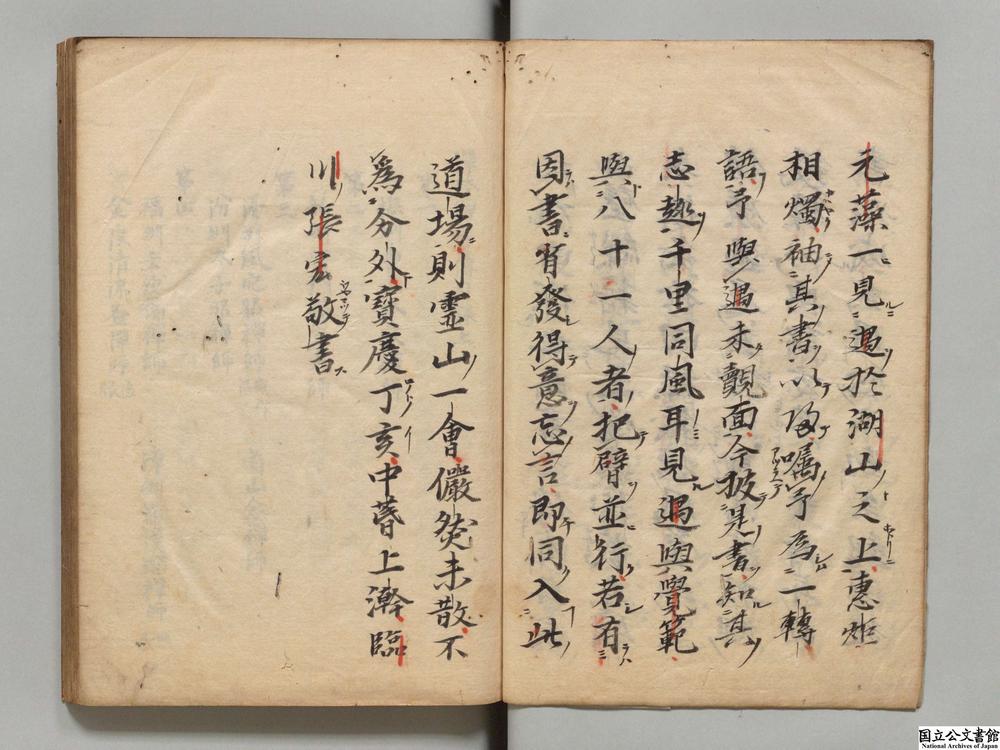 元藻一見過於湖山之上惠炬
相燭袖其書以歸囑予爲一轉
語予與過未覿面今披是書知其
志趣千里同風耳見過與覺範
與八十一人者把臂並行若有
因書省發得意忘言即同入此
道場則靈山一會儼然未散不
為分外寶慶丁亥中春上澣臨
川張宏敬書
国立公文書館
National Archives of Japan